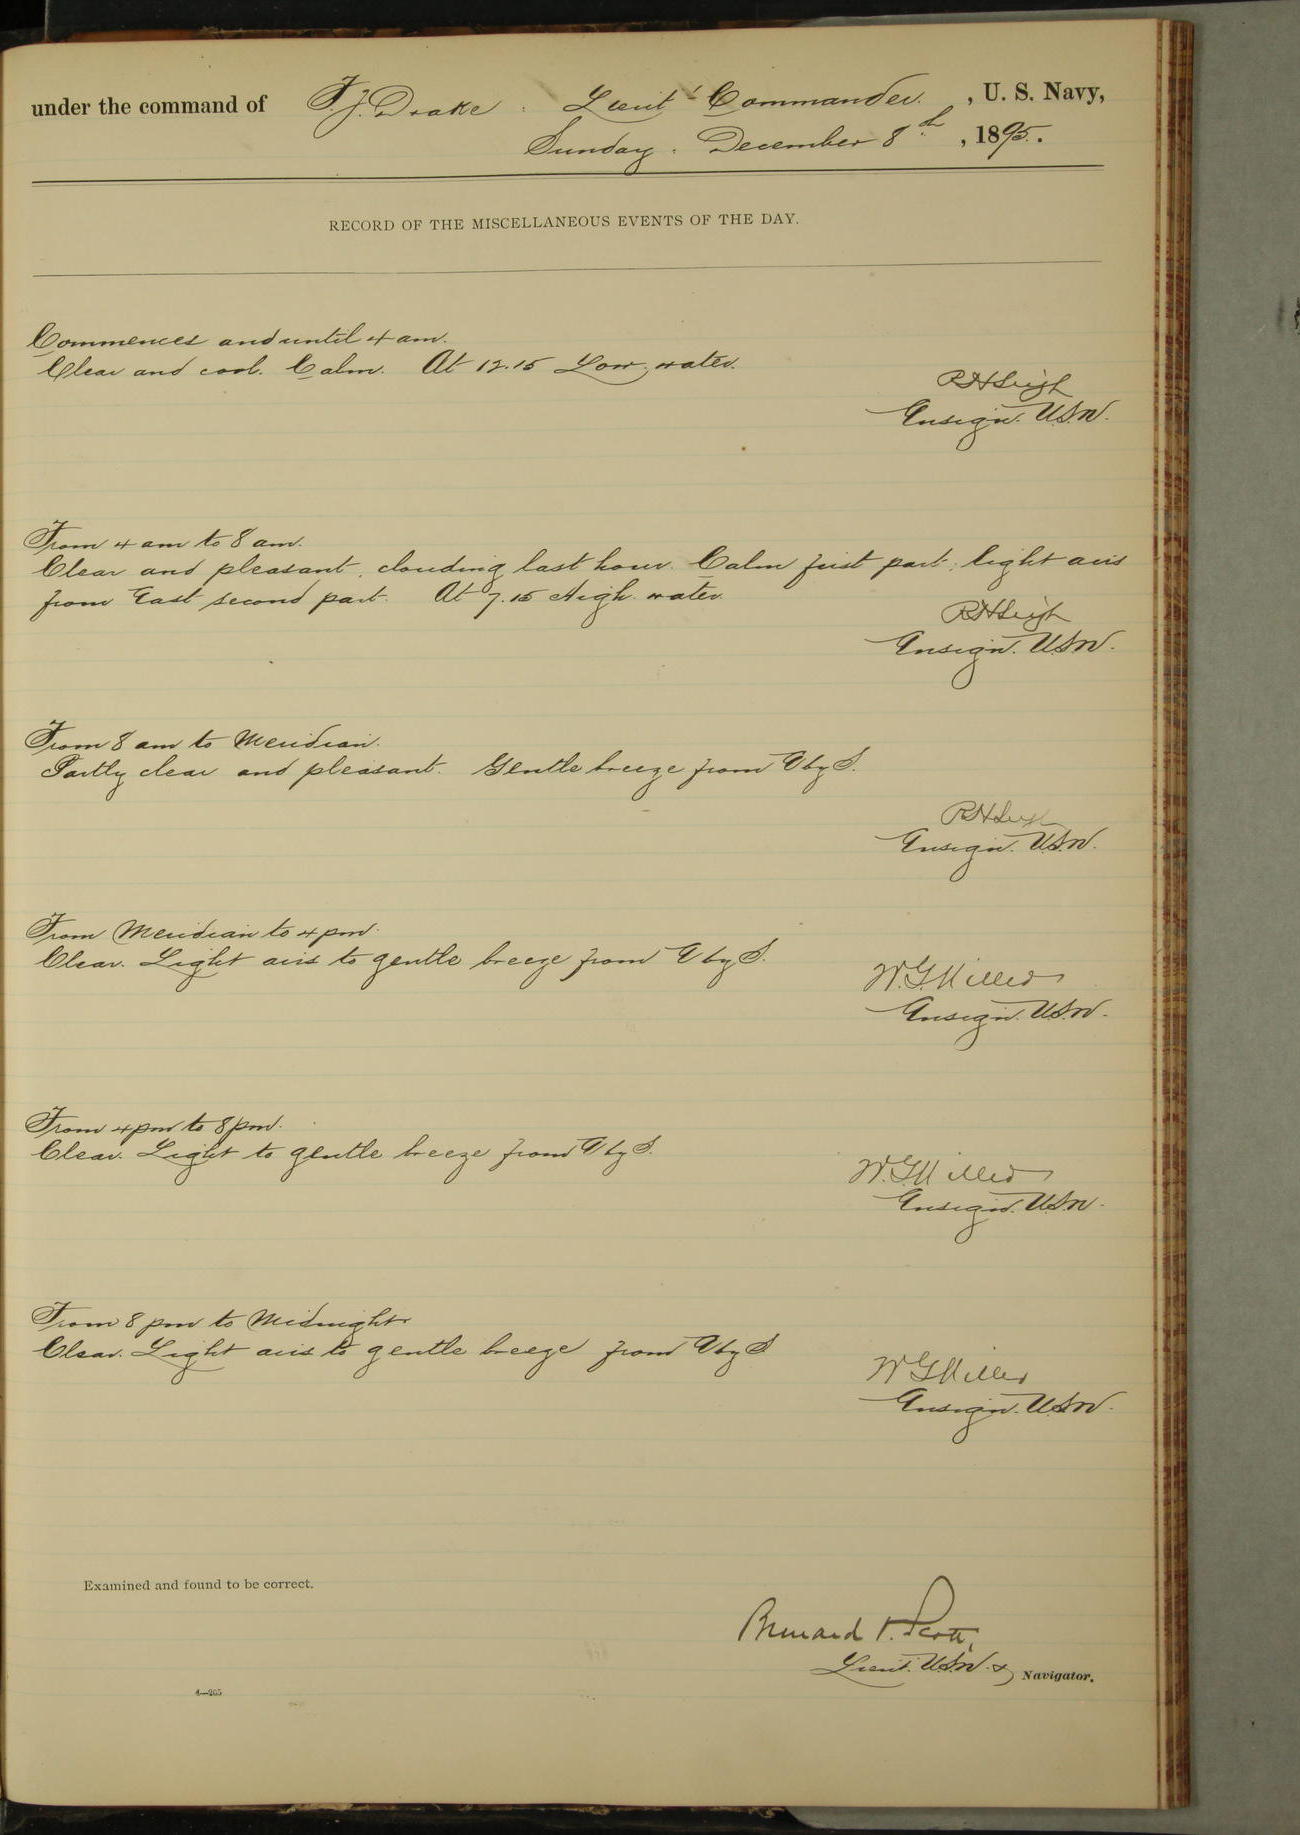 under the command of F. J. Drake. Lieut-Commander. , U. S. Navy,
Sunday. December 8th , 1895.
RECORD OF THE MISCELLANEOUS EVENTS OF THE DAY.
Commences and until 4 am.
Clear and cool. Calm. At 12.15 Low water.
R H Leigh
Ensign. U.S.N.
From 4 am to 8 am.
Clear and pleasant, clouding last hour. Calm first part; light airs
from East second part. At 7.15 High water.
R H Leigh
Ensign. U.S.N.
From 8 am to Meridian.
Partly clear and pleasant. Gentle breeze from E by S.
R H Leigh
Ensign. U.S.N.
From Meridian to 4 pm.
Clear. Light airs to gentle breeze from E by S.
W. G. Miller
Ensign. U.S.N.
From 4 pm to 8 pm.
Clear. Light to gentle breeze from E by S.
W. G. Miller
Ensign. U.S.N.
From 8 pm to Midnight
Clear. Light airs to gentle breeze from E by S
W G Miller
Ensign. U.S.N.
Examined and found to be correct.
Bernard O. Scott,
Lieut. U.S.N. & Navigator.
4—205